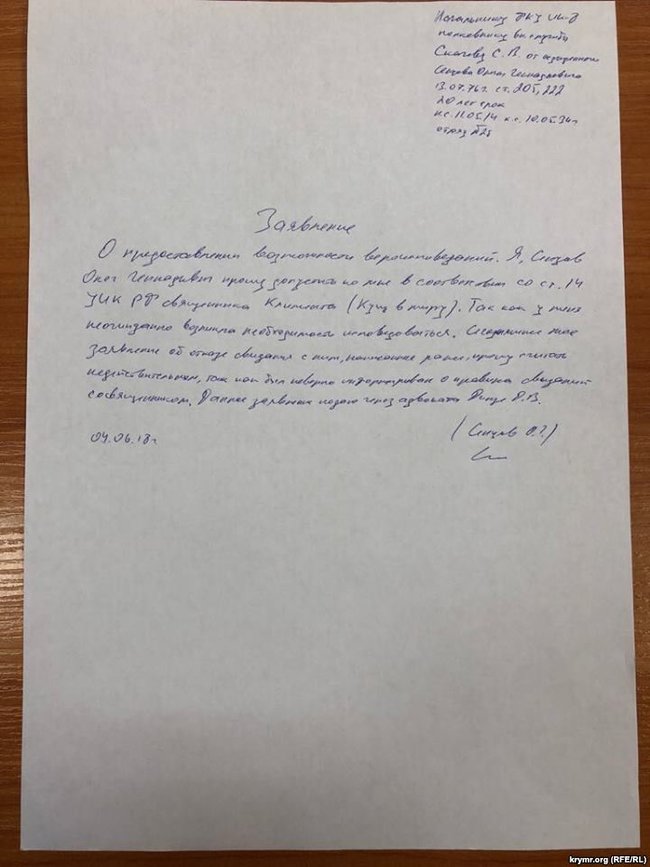 Начальнику ФКУ ИК-8
полковнику вн. службы
С. В. от осужденного
Сенцова Олега Геннадьевича
13.07.76г. ст. 205, 222
20 лет срок
н.с. 11.05.14 к.с. 10.05.34г
отряд
Заявление
О предоставлении возможности вероисповеданий. Я, Сенцов
Олег Геннадьевич прошу допустить ко мне в соответствии со ст. 14
УИК РФ священника Климента (Кущ в миру). Так как у меня
неожиданно возникла необходимость исповедоваться. мое
заявление об отказе свидания с ним, написанное ранее, прошу считать
недействительным, так как был неверно информирован о правилах свиданий
со священником. Данное заявление подаю через адвоката Динзе Д.В.
04.06.18г.
(Сенцов О.Г.)
krymr.org (RFE/RL)